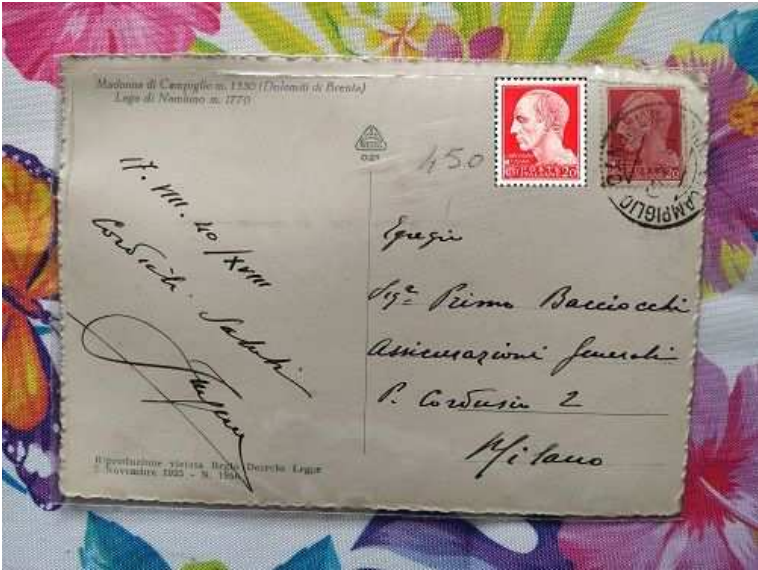 Madonna di Campiglio m. 1550 (Dolomiti di Brenta)
Lago di Nambino m. 1770
450
20
20
CAMPIGLIO
17. VIII. 40 / XVIII
Cordiali Saluti
Egregio
Sigr Primo Bacciocchi
Assicurazioni Generali
P. Cordusio 2
Milano
Riproduzione vietata Regio Decreto Legge
7 Novembre 1925 - N. 1950